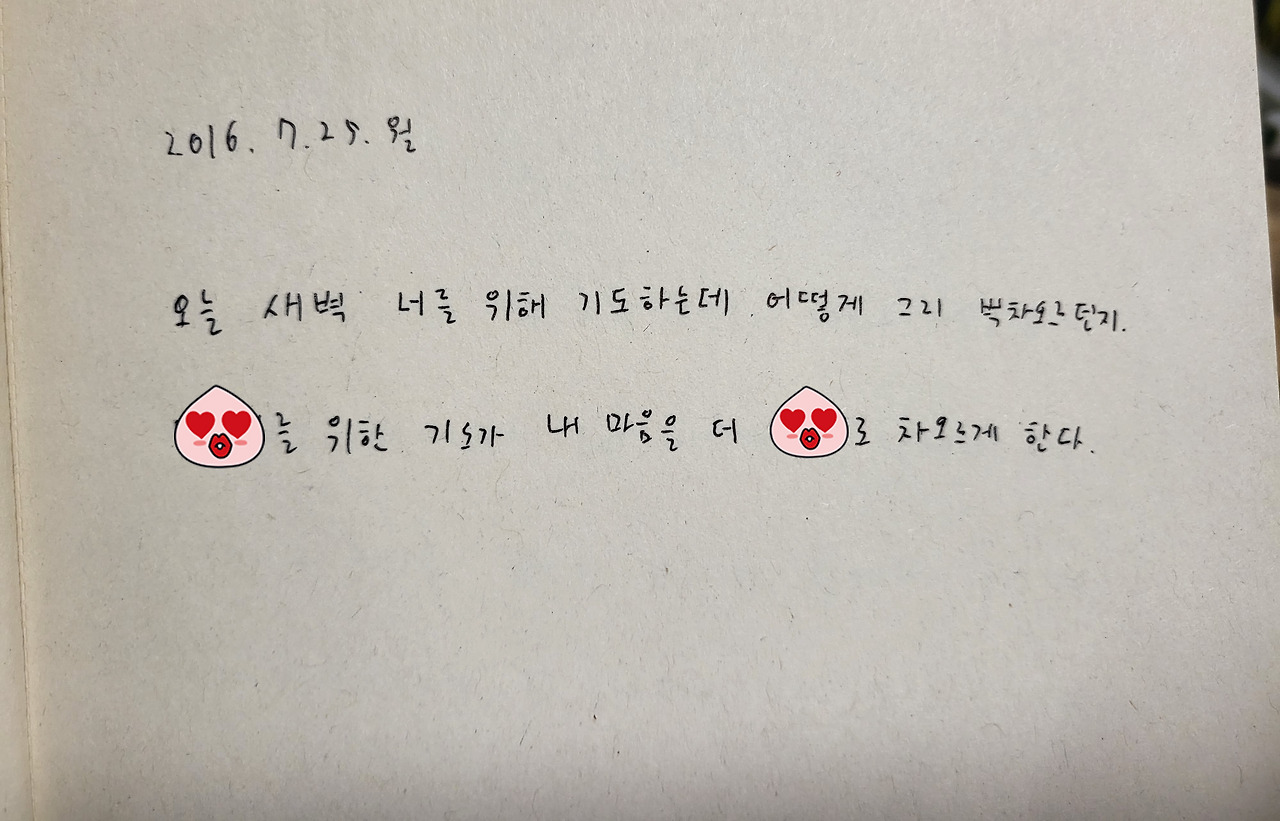 2016. 7. 25. 월
오늘 새벽 너를 위해 기도하는데 어떻게 그리 벅차오르던지.
를 위한 기도가 내 마음을 더 로 차오르게 한다.